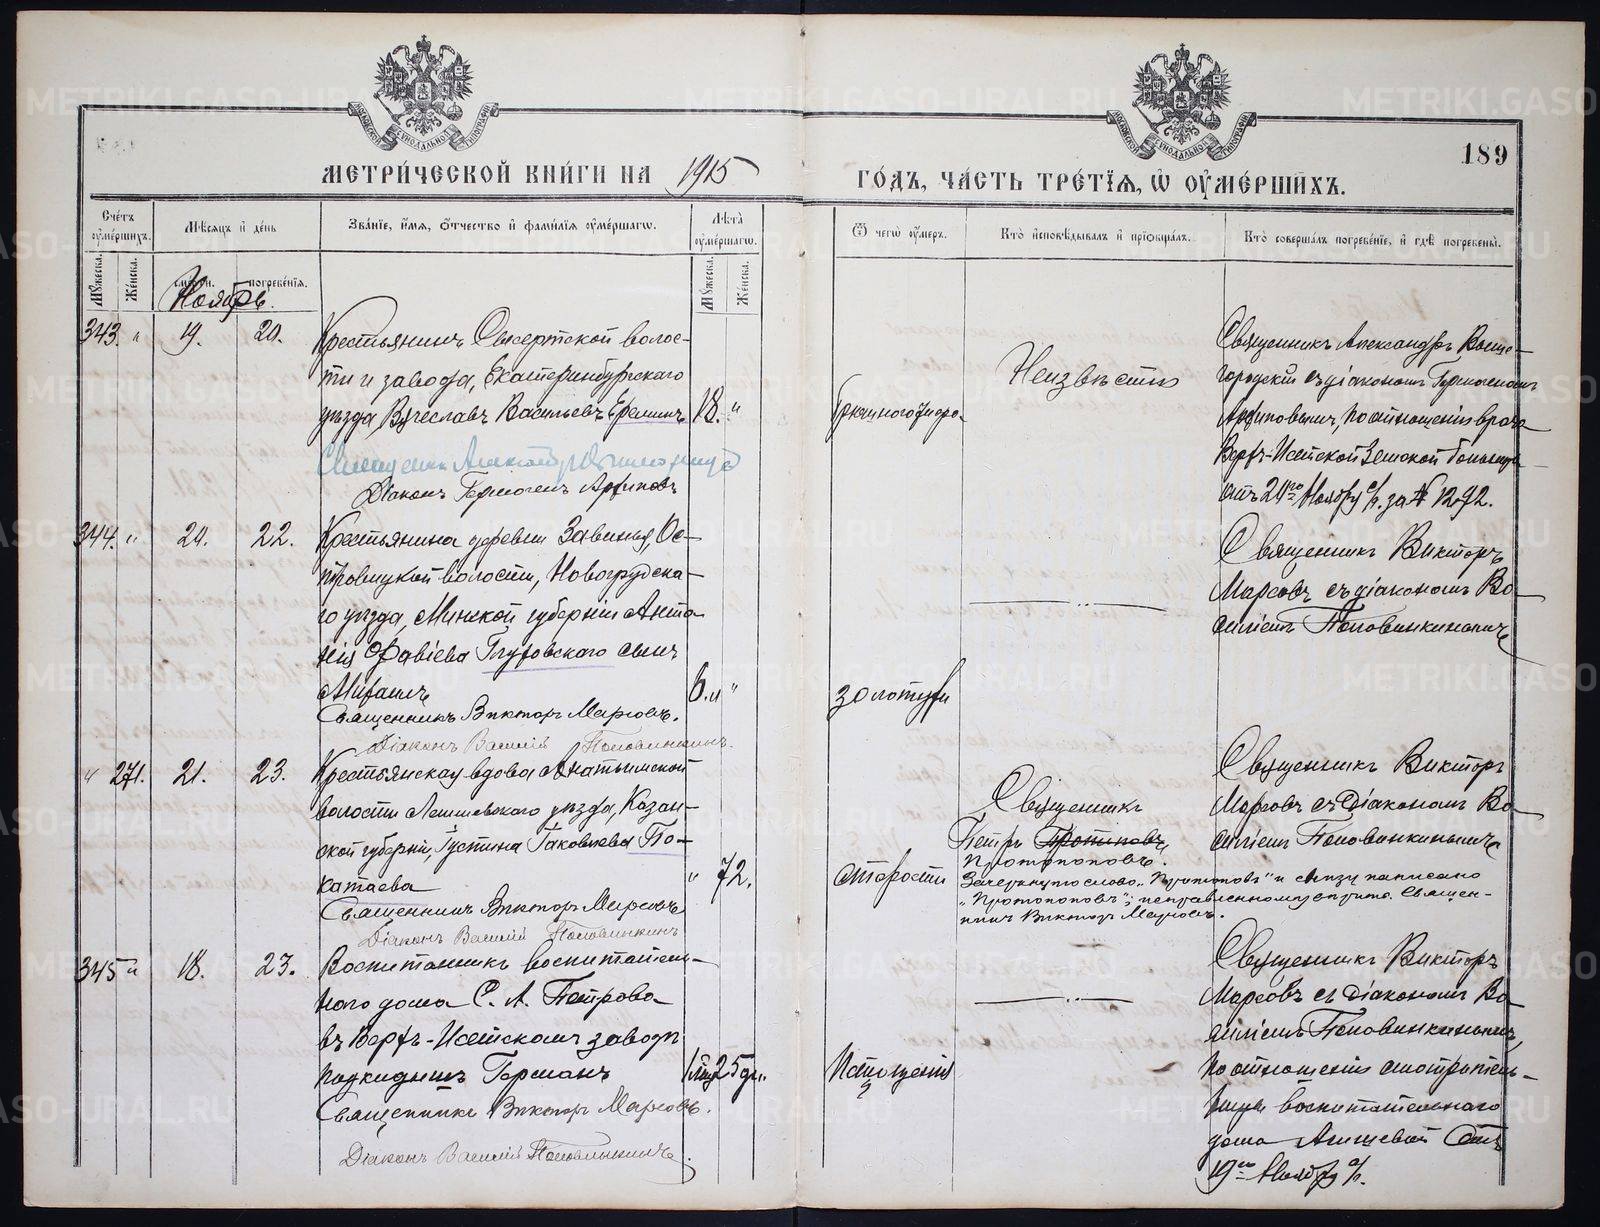 МЕТРИ́ЧЕСКОЙ КНИ́ГИ НА 1915
ГО́ДЪ, ЧА́СТЬ ТРЕ́ТІЯ, Ѡ ОУМЕ́РШИХЪ.
189
Сче́тъ оумершихъ.
Мѣсяцъ и день
Зва́ніе, и́мя, ѻ́тчество и фами́лія оуме́ршагѡ.
Лѣта оуме́ршагѡ.
Ѿ чегѡ̀ оу́меръ.
Кто̀ исповѣ́дывалъ и пріѡбща́лъ.
Кто̀ соверша́лъ погребе́ніе, и гдѣ̀ погребены̀.
Мꙋ́жеска.
Же́нска.
сме́рти.
погребе́нія.
Мꙋ́жеска.
Же́нска.
Ноябрь.
343. " 19. 20.
Крестьянинъ Сысертской волос-
ти и завода, Екатеринбургскаго
уѣзда Вячеславъ Васильевъ Ереминъ 18. "
Священникъ Александръ
Діаконъ Гермогенъ Архиповъ
Брюшного тифа
Неизвѣстно
Священникъ Александръ Выше-
городскій съ діакономъ Гермогеномъ
Архиповымъ, по отношенію врача
Верхъ-Исетской Земской больницы
отъ 20го Ноября с/г. за № 1292.
344. " 20. 22.
Крестьянина деревни Завинья, Ос-
тровицкой волости, Новогрудска-
го уѣзда, Минской губерніи Анто
нія Фавіева Глуховскаго сынъ
Митрофанъ 6. м "
Священникъ Викторъ Марсовъ.
Діаконъ Василій Половинкинъ.
золотухи
Священникъ Викторъ
Марсовъ съ діакономъ Ва-
силіемъ Половинкинымъ
" 271. 21. 23.
Крестьянская вдова
волости Лаишевскаго уѣзда, Казан-
ской губерніи, Іустина Іаковлева По-
катаева " 72.
Священникъ Викторъ Марсовъ
Діаконъ Василій Половинкинъ
старости
Священникъ
Петръ Протоповъ,
Протопоповъ.
Зачеркнуто слово "Протоповъ" и снизу написано
"Протопоповъ"; исправленному вѣрить. Священ-
никъ Викторъ Марсовъ.
Священникъ Викторъ
Марсовъ съ діакономъ Ва-
силіемъ Половинкинымъ
345 " 18. 23.
Воспитанникъ воспитатель-
наго дома С. А. Петрова
въ Верхъ-Исетскомъ заводѣ
подкидышъ Германъ 1 м. 25 дн.
Священникъ Викторъ Марсовъ.
Діаконъ Василій Половинкинъ.
Истощенія
Священникъ Викторъ
Марсовъ съ діакономъ Ва-
силіемъ Половинкинымъ,
по отношенію смотритель-
ницы воспитательнаго
дома отъ
19го Ноября с/г.
METRIKI.GASO-URAL.RU